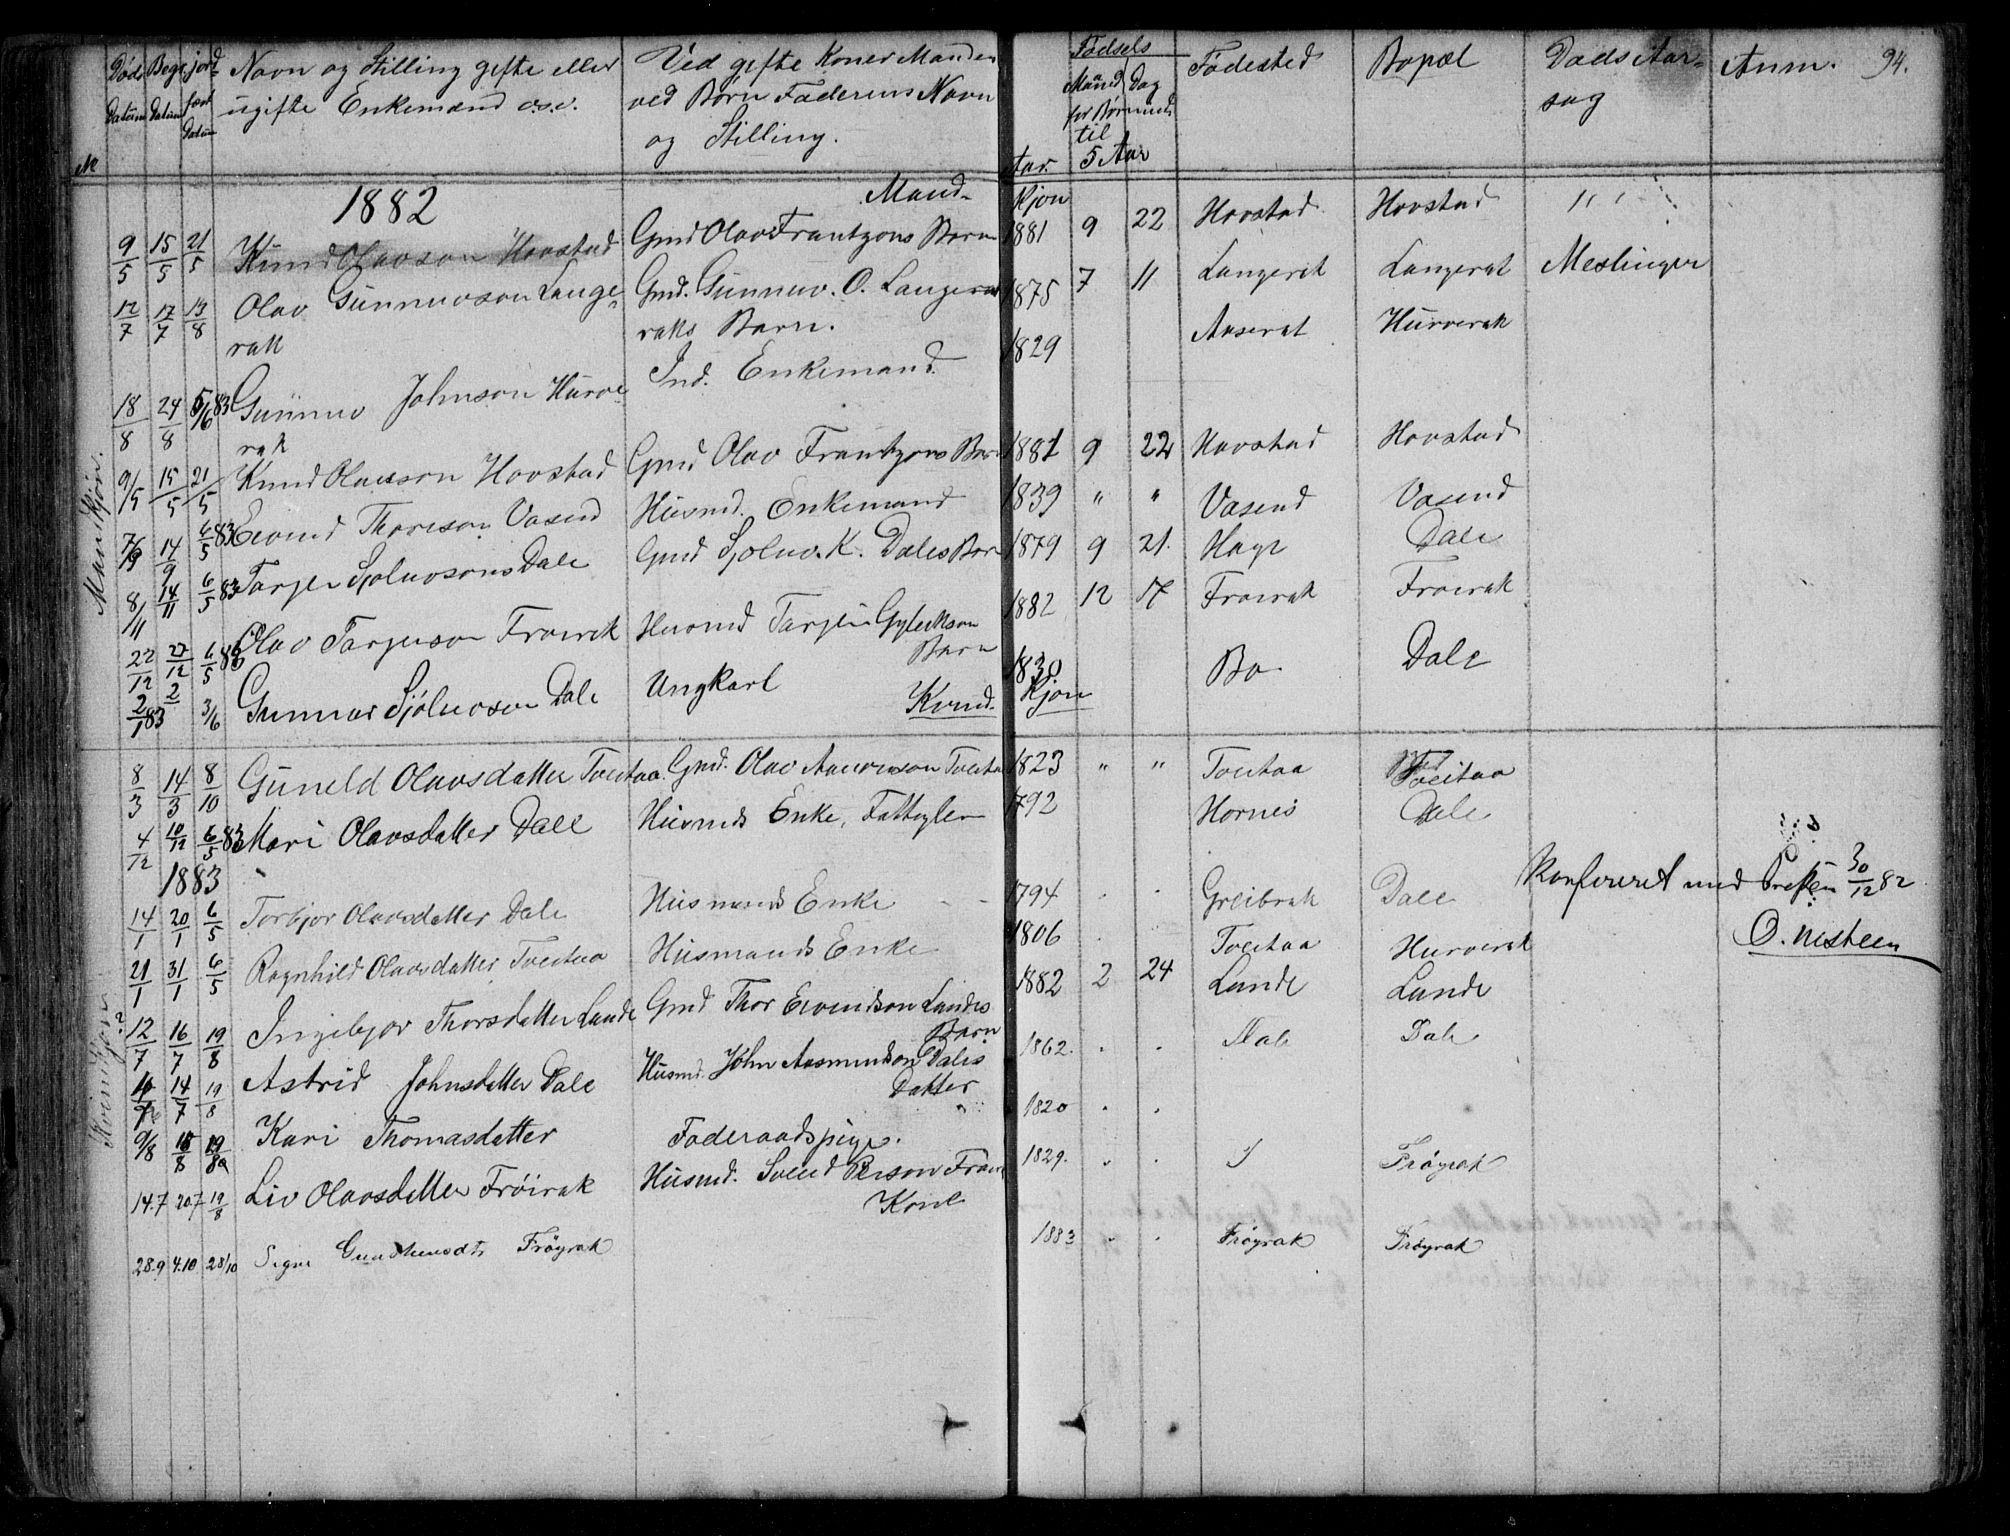 94.
№ Døds Datum Begr. Datum jordfæst Datum Navn og Stilling gifte eller ugifte Enkemænd o.s.v. Ved gifte Koner Manden ved Børn Faderens Navn og Stilling. Aar. Fødsels Maaned Dag for Børn ind til 5 Aar Fødested Bopæl Døds Aarsag Anm.
1882 Mand- Kjøn
Mandkjøn.
9/5 15/5 21/5 Knud Olavson Hovstad Gmd Olav Frantzons Barn 1881 9 22 Hovstad Hovstad " "
12/7 17/7 13/8 Olav Gunnuvson Lange-
rak Gmd. Gunnuv. O. Lange-
raks Barn. 1875 7 11 Langerak Langerak Meslinger
18/8 24/8 5/6 83 Gunnuv Johnson Hurve
rak Ind. Enkemand. 1829 Aaserat Hurverak
9/5 15/5 21/5 Knud Olavson Hovstad Gmd Olav Frantzons Barn 1881 9 22 Hovstad Hovstad
7/9 14/9 6/5 83 Eivind Thoreson Vasend Husmd. Enkemand 1839 " " Vasend Vasend
8/11 14/11 6/5 83 Tarjei Sjolvosons Dale Gmd Sjoluv. K. Dales Barn 1879 9 21. Hage Dale
22/12 27/12 6/5 83 Olav Tarjeison Froirak Husmd Tarjei Gyleikson
Barn 1882 12 17 Froirak Froirak
2/1 83 2 3/6 Gunnar Sjólvoson Dale Ungkarl 1830 Bo Dale
Kvind- Kjøn
Kvindkjøn
8/3 14/3 8/10 Guneld Olavsdatter Tveitaa. Gmd. Olav Aanonson Tveitaa 1823 " " Tveitaa Tveitaa
4/12 10/12 6/5 83 Mari Olavsdatter Dale Husmds Enke, Fattiglem 1792 Hornes Dale
1883
Konfereret med Presten 30/12 82
O. Nesteen
14/1 20/1 6/5 Torbjor Olavsdatter Dale Husmands Enke 1794 Greibrak Dale
21/1 31/1 6/5 Ragnhild Olavsdatter Tveitaa Husmands Enke 1806 Tveitaa Hurverak
12/7 16/7 19/8 Ingebjor Thorsdatter Lande Gmd Thor Eivindson Landes
Barn 1882 2 24 Lande Lande
14/7 19/8 Astrid Johnsdatter Dale Husmd. John Aasmundson Dales
Datter 1862. Dale Dale
9/8 19/8 Kari Thomasdatter Foderaadspige. 1820
14.7 20.7 19/8 Liv Olavsdatter Fröirak Husmd. Sveid Person Froir
Kone 1829. Frøyrak
28.9 4.10 28/10 Signe Gundhunsdt. Frøyrak 1883 Frøyrak Frøyrak